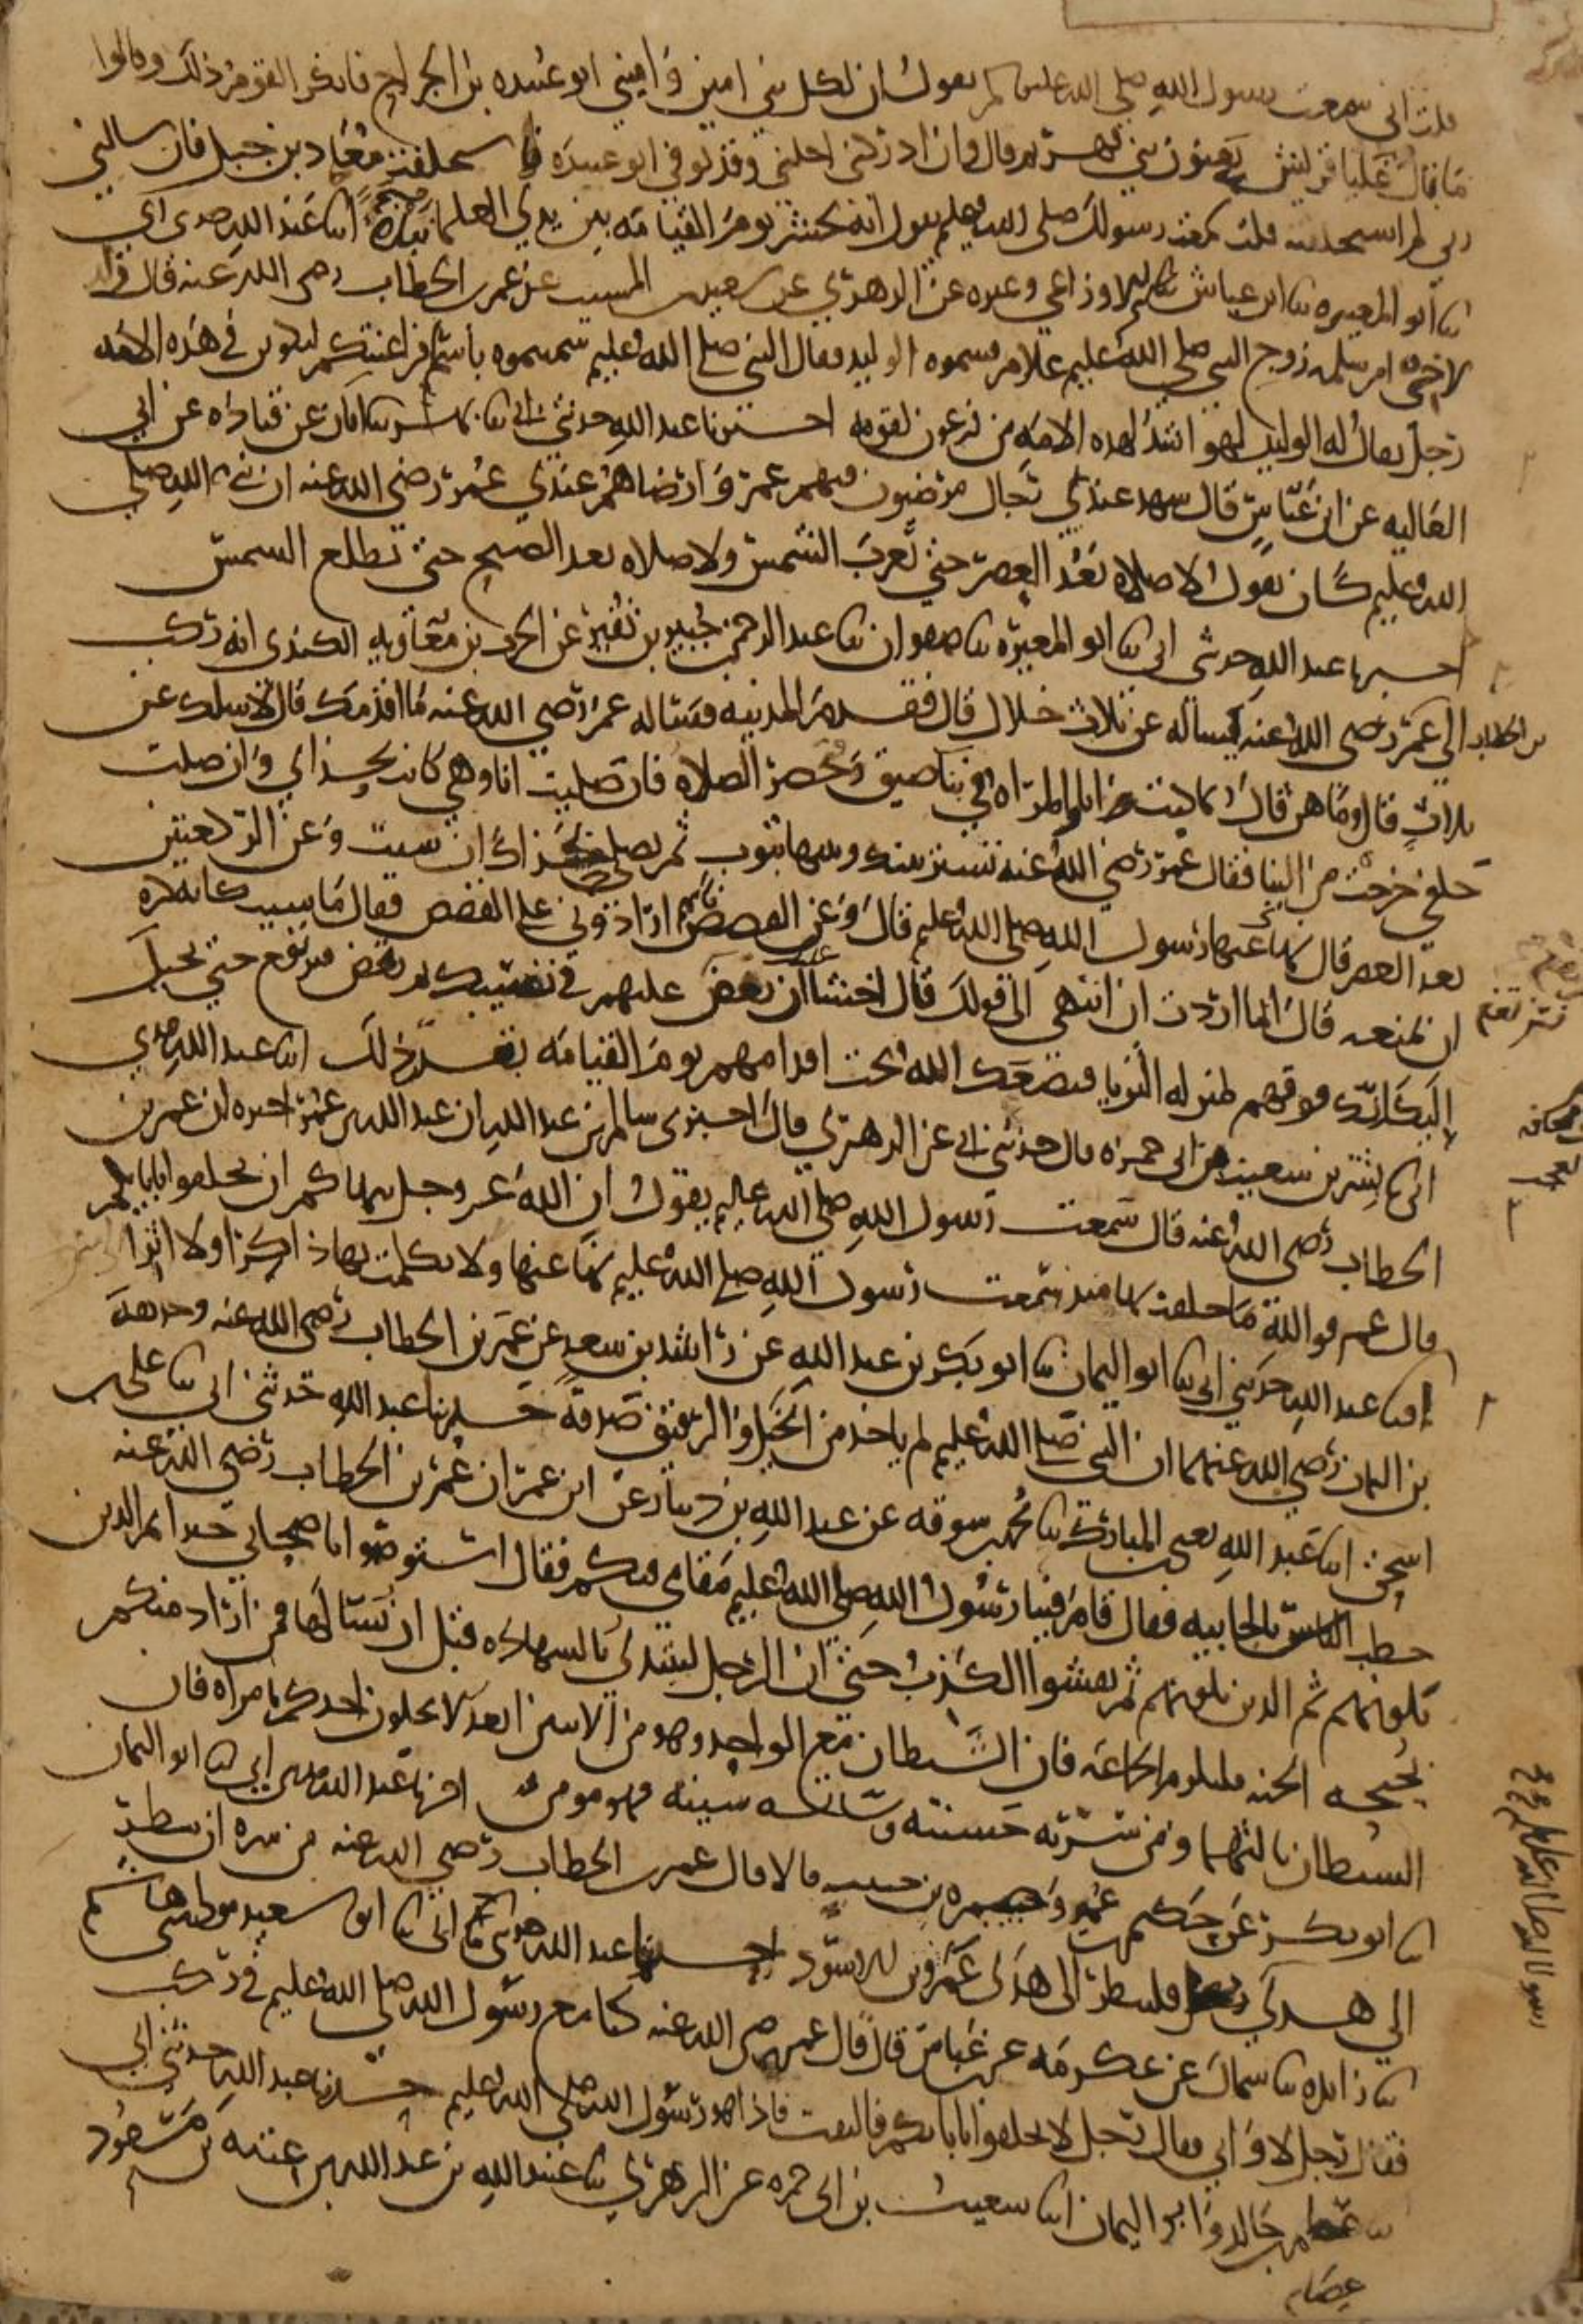 قلت اني سمعت رسول الله صلى الله عليه وسلم يقول ان لكل نبي امين وأميني ابو عبيده بن الجراح فانكر القوم ذلك وقالوا
ما بال عليا قريش يعنون بني فهر ثم قال فان ادركني اجلي وقد توفي ابو عبيده استخلفت معاذ بن جبل فان سالني
ربي لم استخلفته قلت سمعت رسولك صلى الله عليه وسلم يقول انه يحشر يوم القيامه بين يدي العلما نبذة انا عبد الله حدثني ابي
ثنا أبو المغيره ثنا ابن عياش الاوزاعي وغيره عن الزهري عن سعيد بن المسيب عن عمر بن الخطاب رضي الله عنه قال ولد
لاخي ام سلمه زوج النبي صلى الله عليه وسلم غلام فسموه الوليد فقال النبي صلى الله عليه وسلم سميتموه بأسم فراعنتكم ليكونن في هذه الامه
رجل يقال له الوليد لهو اشد لهذه الامه من فرعون لقومه اخبرنا عبد الله حدثني ابي ثنا بهز ثنا ابان عن قتاده عن ابي
العاليه عن ابن عباس قال شهد عندي رجال مرضيون فيهم عمر وارضاهم عندي عمر رضي الله عنه ان نبي الله صلى
الله عليه وسلم كان يقول لا صلاه بعد العصر حتى تغرب الشمس ولا صلاه بعد الصبح حتى تطلع الشمس
اخبرنا عبد الله حدثني ابي ثنا ابو المغيره ثنا صفوان ثنا عبد الرحمن بن جبير بن نفير عن الحرث بن معاويه الكندي انه ركب
بن الخطاب الى عمر رضي الله عنه يساله عن ثلاث خلال قال فقدم المدينه فساله عمر رضي الله عنه ما اقدمك قال لاسلك عن
ثلاث قال وما هن قال ربما كنت انا والمراه في بنا ضيق وتحضر الصلاه فان صليت انا وهي كانت بحذاي وان صلت
خلفي خرجت من البنا فقال عمر رضي الله عنه تستر بينك وبينها بثوب ثم تصلي بحذاك ان شيت وعن الركعتين
بعد العصر قال نهاني عنها رسول الله صلى الله عليه وسلم قال وعن القصص فانهم ارادوني على القصص فقال ما شيت كانه كره
ان يمنعه قال انما اردت ان انتهي الى قولك قال اخشا عليك ان تقص عليهم في نفسك ثم تقص فترتفع حتى يخيل
اليك انك فوقهم بمنزله الثريا فيضعك الله تحت اقدامهم يوم القيامه بقدر ذلك انا عبد الله حدثني
ابي ثنا بشر بن سعيب بن ابي حمزه قال حدثني ابي عن الزهري قال اخبرني سالم بن عبد الله ان عبد الله بن عمر اخبره ان عمر بن
الخطاب رضي الله عنه قال سمعت رسول الله صلى الله عليه وسلم يقول ان الله عز وجل ينهاكم ان تحلفوا بابايكم
قال عمر فوالله ما حلفت بها منذ سمعت رسول الله صلى الله عليه وسلم نها عنها ولا تكلمت بها ذاكرا ولا اثرا
انا عبد الله حدثني ابي ثنا ابو اليمان ثنا ابو بكر بن عبد الله عن راشد بن سعد عن عمر بن الخطاب رضي الله عنه وحذيفه
بن اليمان رضي الله عنهما ان النبي صلى الله عليه وسلم لم ياخذ من الخيل والرقيق صدقة اخبرنا عبد الله حدثني ابي ثنا علي بن
اسحق انا عبد الله يعني بن المبارك ثنا محمد بن سوقه عن عبد الله بن دينار عن ابن عمر ان عمر بن الخطاب رضي الله عنه
خطب الناس بالجابيه فقال قام فينا رسول الله صلى الله عليه وسلم مقامي فيكم فقال استوصوا باصحابي خيرا ثم الذين
يلونهم ثم الذين يلونهم ثم يفشوا الكذب حتى ان الرجل ليبتدي بالشهاده قبل ان يسالها فمن اراد منكم
بحبحه الجنه فليلزم الجماعه فان الشيطان مع الواحد وهو من الاثنين ابعد لا يخلون احدكم بامراه فان
الشيطان ثالثهما ومن سرته حسنته وساته سيئته فهو مومن اخبرنا عبد الله حدثني ابي ثنا ابو اليمان
ثنا ابو بكر عن حكيم بن عمير وضمره بن حبيب قالا قال عمر بن الخطاب رضي الله عنه من سره ان ينظر
الى هدي فلينظر الى هدي عمرو بن الاسود اخبرنا عبد الله حدثني ابي ثنا ابو سعيد مولى بني هاشم
ثنا زايده ثنا سماك عن عكرمه عن بن عباس قال قال عمر رضي الله عنه كنا مع رسول الله صلى الله عليه وسلم في ركب
فقال رجل لا وابي فقال رجل لا تحلفوا بابايكم فالتفت فاذا هو رسول الله صلى الله عليه وسلم اخبرنا عبد الله حدثني ابي
ثنا عصام بن خالد وابو اليمان انا سعيب بن ابي حمزه عن الزهري ثنا عبيد الله بن عبد الله بن عتبه بن مسعود
عصام